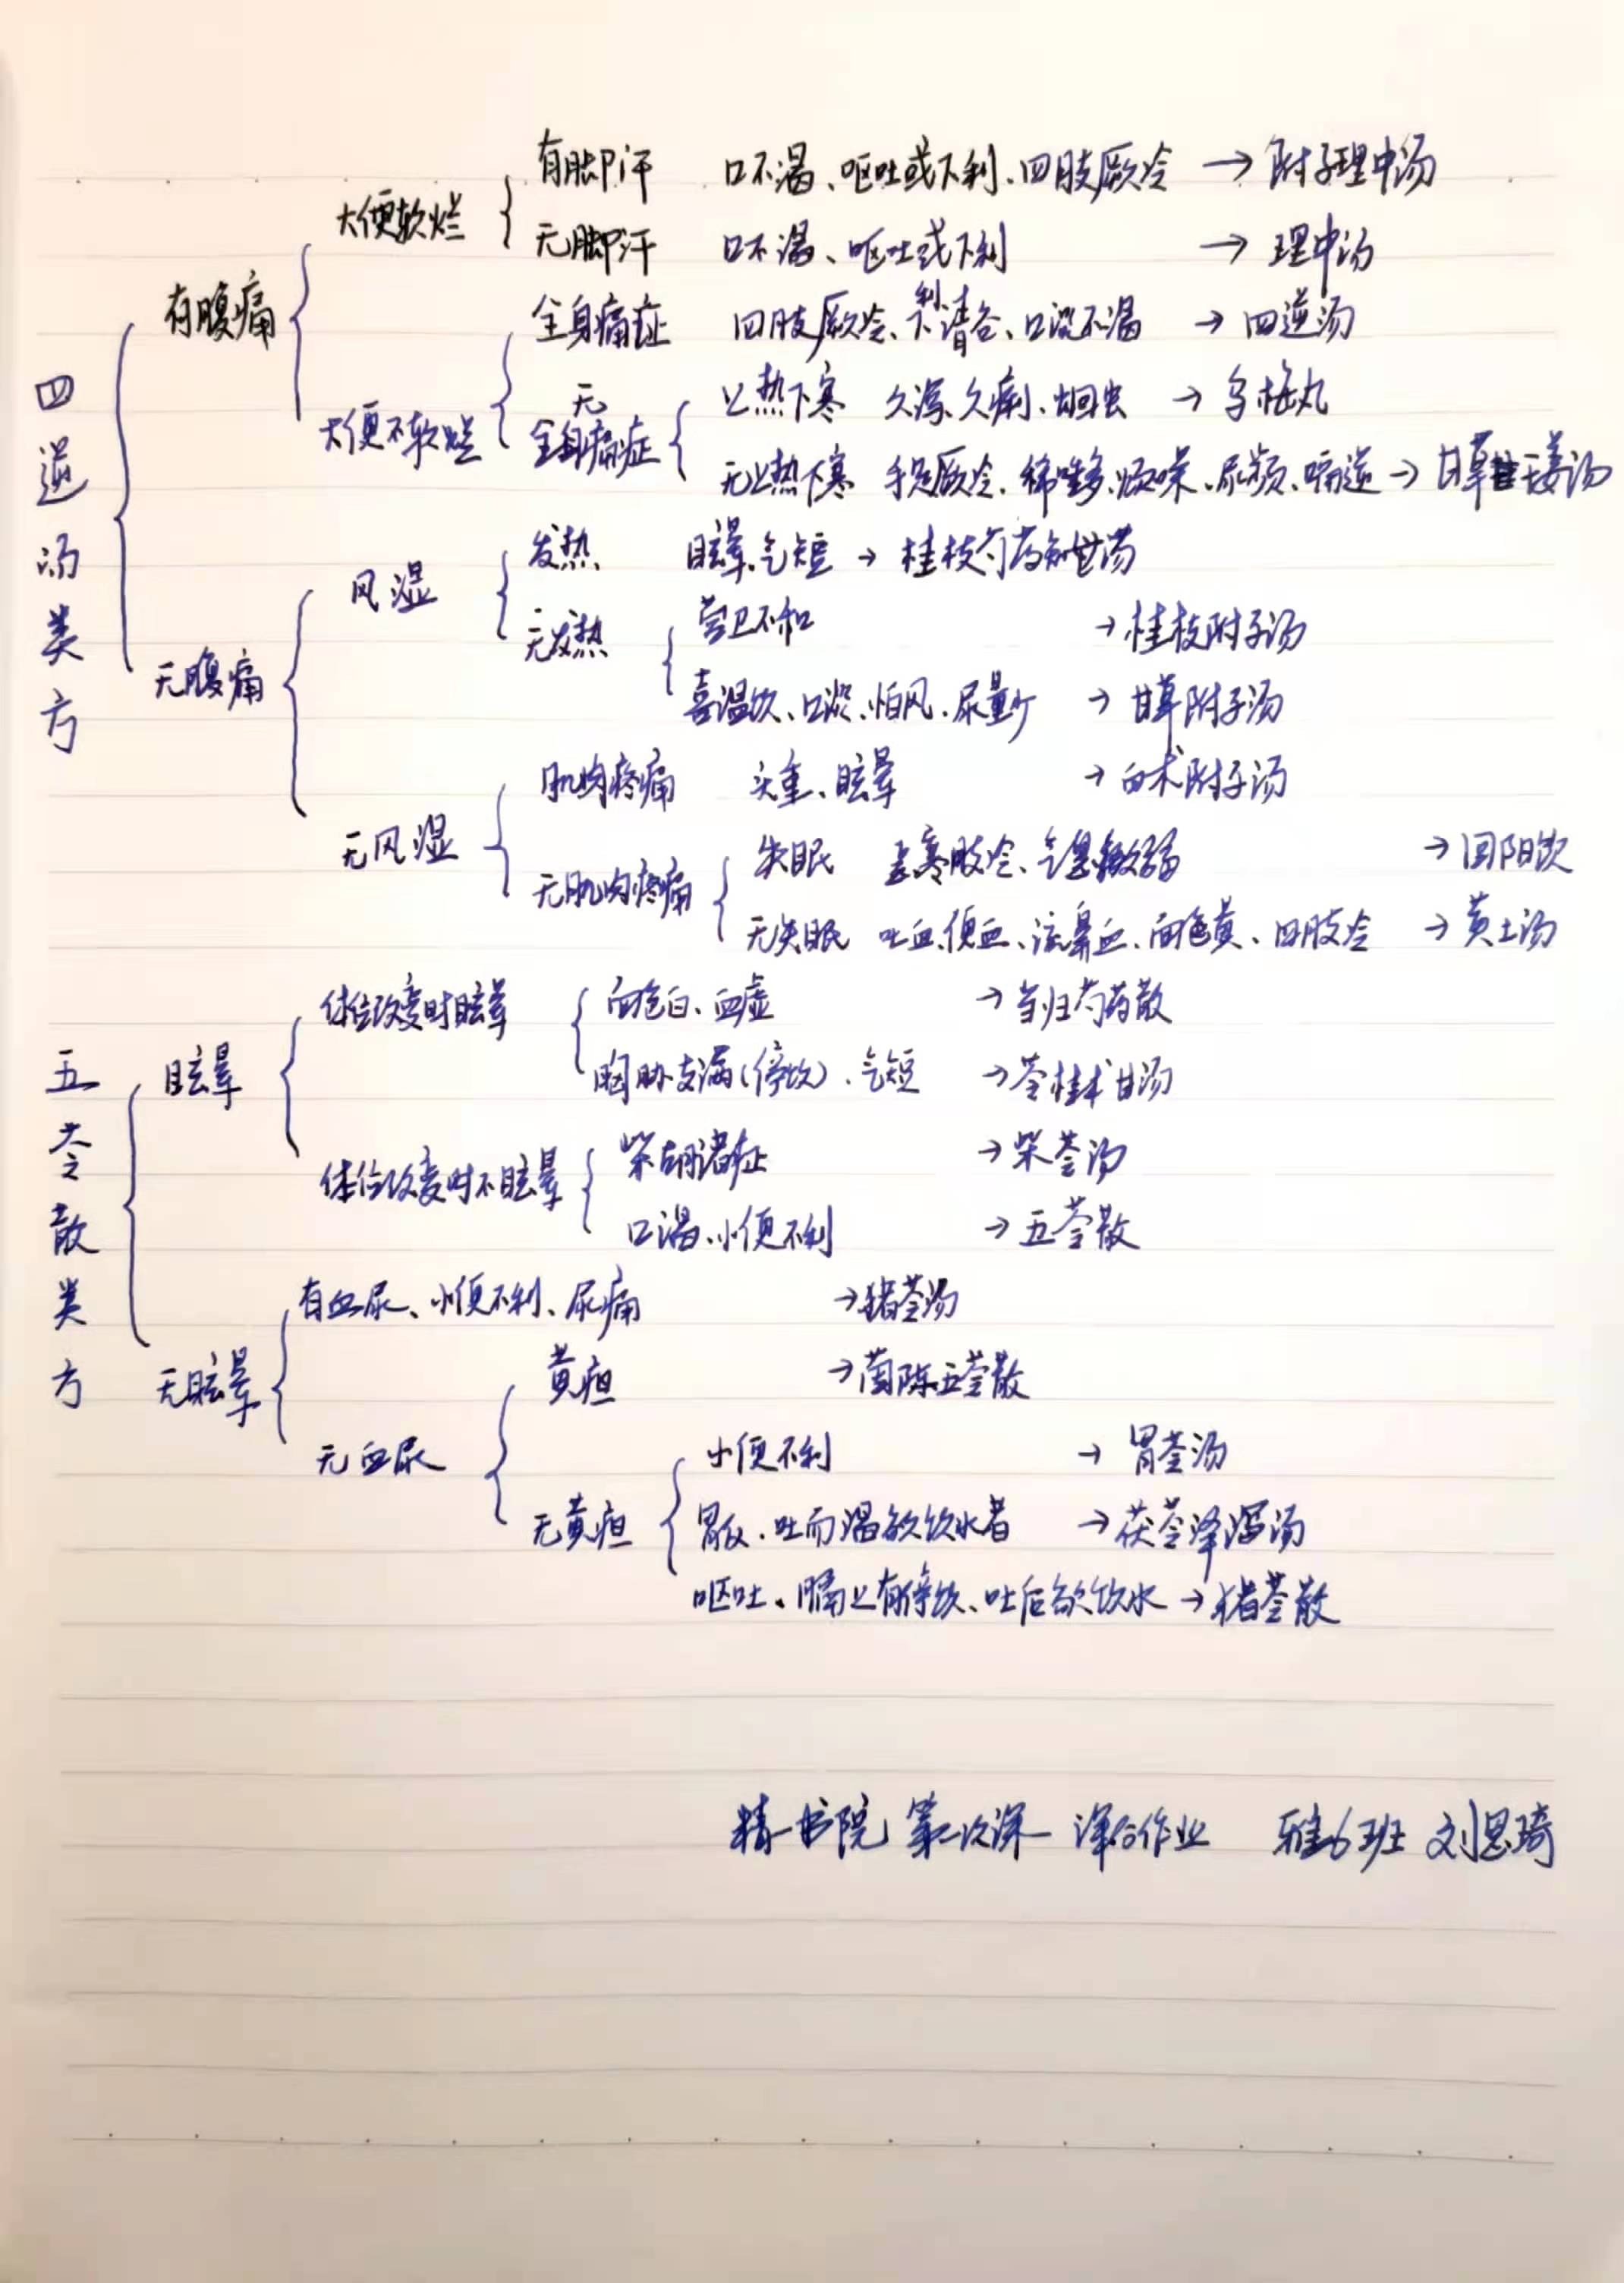 四逆汤类方
有腹痛
大便软烂
有脚汗 口不渴、呕吐或下利、四肢厥冷 → 附子理中汤
无脚汗 口不渴、呕吐或下利 → 理中汤
大便不软烂
全身痛症 四肢厥冷、下利清谷、口淡不渴 → 四逆汤
无全身痛症
上热下寒 久泻、久痢、蛔虫 → 乌梅丸
无上热下寒 手足厥冷、稀唾多、烦噪、尿频、嗝逆 → 甘草干姜汤
无腹痛
风湿
发热 眩晕、气短 → 桂枝芍药知母汤
无发热
营卫不和 → 桂枝附子汤
喜温饮、口淡、怕风、尿量少 → 甘草附子汤
无风湿
肌肉疼痛 头重、眩晕 → 白术附子汤
无肌肉疼痛
失眠 恶寒肢冷、气息微弱 → 回阳饮
无失眠 吐血、便血、流鼻血、面色黄、四肢冷 → 黄土汤
五苓散类方
眩晕
体位改变时眩晕
面色白、血虚 → 当归芍药散
胸胁支满(停饮)、气短 → 苓桂术甘汤
体位改变时不眩晕
柴胡诸症 → 柴苓汤
口渴、小便不利 → 五苓散
无眩晕
有血尿、小便不利、尿痛 → 猪苓汤
无血尿
黄疸 → 茵陈五苓散
无黄疸
小便不利 → 胃苓汤
胃反、吐而渴欲饮水者 → 茯苓泽泻汤
呕吐、膈上有停饮、吐后欲饮水 → 猪苓散
精一书院 第二次课 课后作业 雅6班 刘思琦